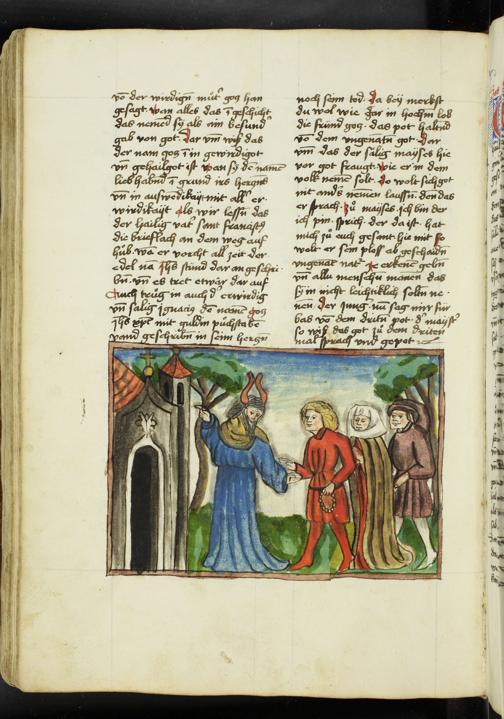 võ der wirdign mũt͛ gog han
gesagt wan alles das ĩ geschicht
das nemed sÿ als ain besund͛
gab von got dar vm wiß das
der nam gog ĩ gewirdigot
vn̄ gehailgot ist wan sÿ dē namē
lieb habnd ĩ grund irs hergns
vn̄ in
wirdikaÿt als wir lesn̄ das
der hailig vat͛ sant franzissg
die brieflach an dem weg auf
hůb wo er vorcht all zeit der
edel na Jhs stůnd dar an geschri
bn̄ vn̄ es tret etwar dar auf
Auch trůg in auch d͛ erwirdig
vn̄ salig ignacig de namē gog
Jhs xp̄s mit guldin půchstabē
vand geschribn̄ in senn hergn
noch senn tod Da beÿ merckst
du wol wie gar in hochem lob
die frund gog das pot haltnd
vō dem vngenātn got Dar
vm̄ das der salig maÿses hie
vor got fraugt wie er in dem
volk nenen solt Do wolt sich got
nit and͛s nenen laussn̄ den das
er sprach zů maÿses ich bin der
ich pin sprich der da ist hat
mich zů euch gesant hie mit so
wolt er sem ploss ab geschaidn̄
vngenāt nat͛ ze erkenē gebn̄
vn̄ alle menschn̄ manen das
sÿ in nicht leichtiklich soltn̄ ne
nen Der Jung nū sag mir für
bas vō dem dritn̄ pot d͛ maÿst͛
so wiß das got zů dem driten
mal sprach vnd gepot